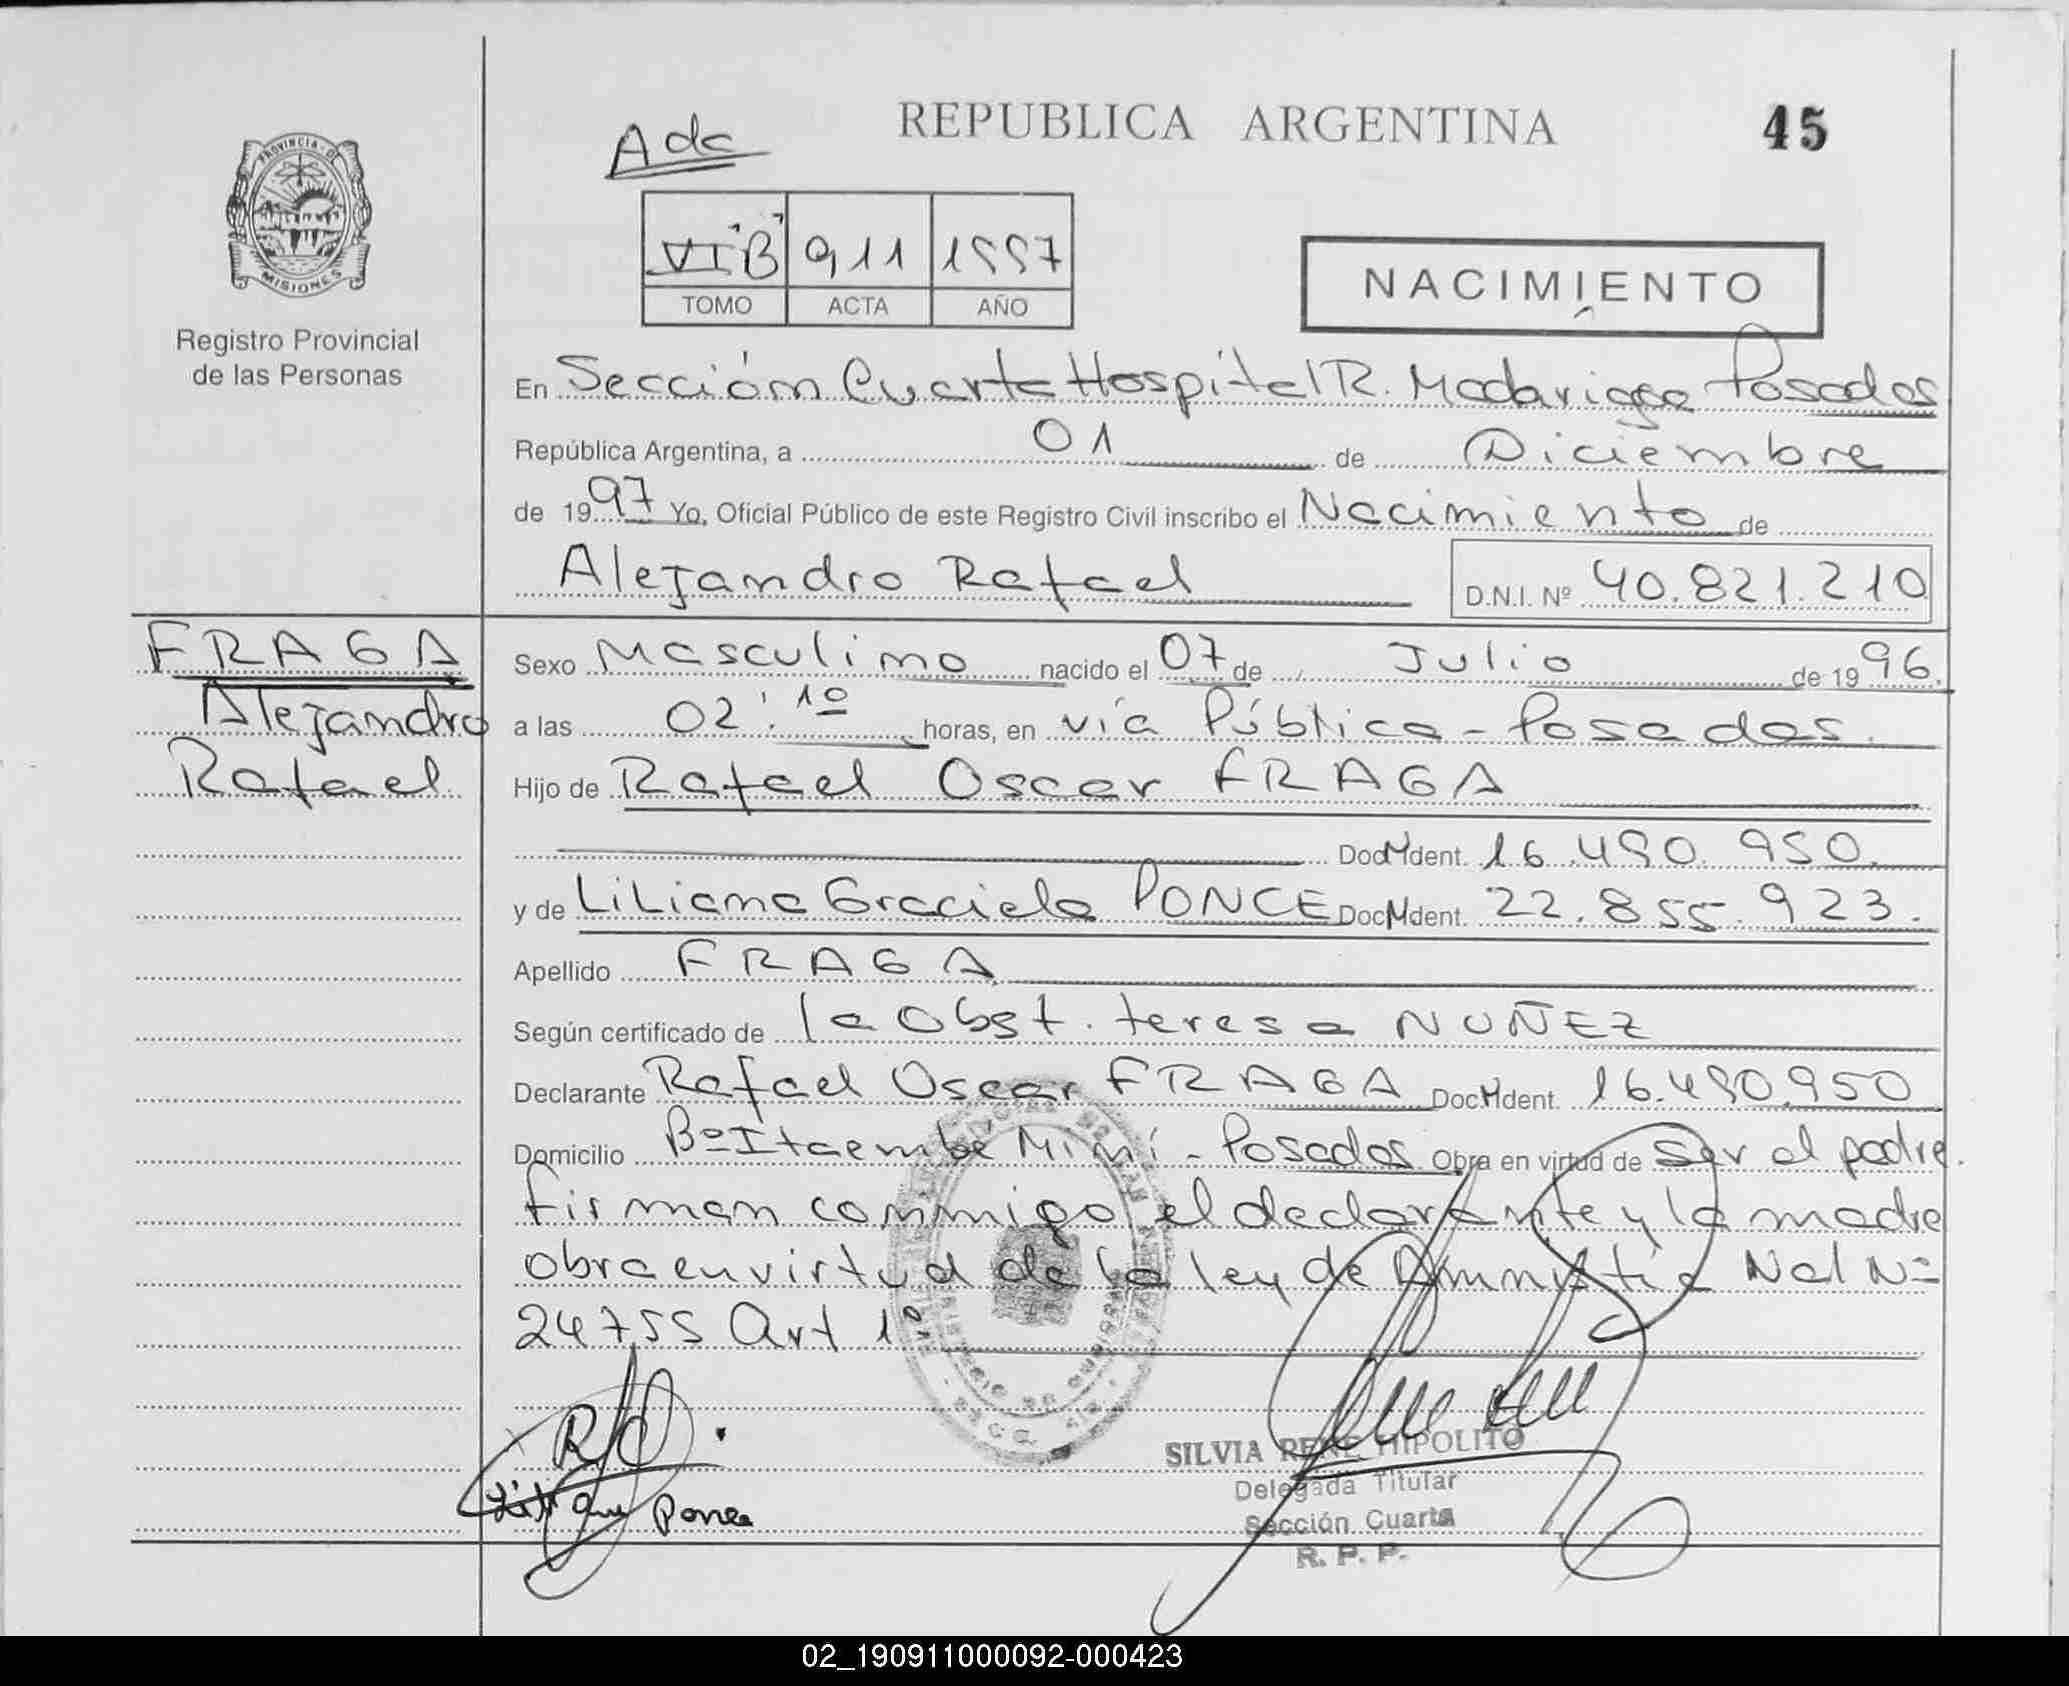 REPUBLICA ARGENTINA
45
PROVINCIA D
MISIONES
Registro Provincial
de las Personas
VI "B" 911 1997
TOMO ACTA AÑO
NACIMIENTO
En Sección Cuarta Hospital R. Madariaga Posadas
República Argentina, a 01 de Diciembre
de 1997 Yo, Oficial Público de este Registro Civil inscribo el Nacimiento de
Alejandro Rafael D.N.I. Nº 40.821.210
FRAGA
Alejandro
Rafael
Sexo Masculino nacido el 07 de Julio de 1996.
a las 02:10 horas, en vía Pública - Posadas.
Hijo de Rafael Oscar FRAGA
Doc. Ident. 16.490.950.
y de Liliana Graciela PONCE Doc. Ident. 22.855.923.
Apellido FRAGA
Según certificado de la Obst. teresa NUÑEZ
Declarante Rafael Oscar FRAGA Doc. Ident. 16.490.950
Domicilio Bº Itaembé Miní - Posadas Obra en virtud de ser el padre.
firman conmigo el declarante y la madre
obra en virtud de la ley de Amnistía Nal Nº
24755 Art 1º
Ponce
SILVIA RENE HIPOLITO
Delegada Titular
Sección Cuarta
R. P. P.
02_190911000092-000423